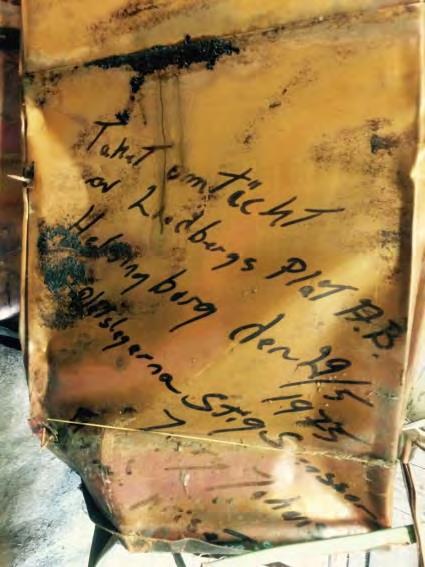 Taket omtäckt
av Lindbergs Plåt A.B.
Helsingborg den 29/5
1975
Plåtslagarna Stig Svensson